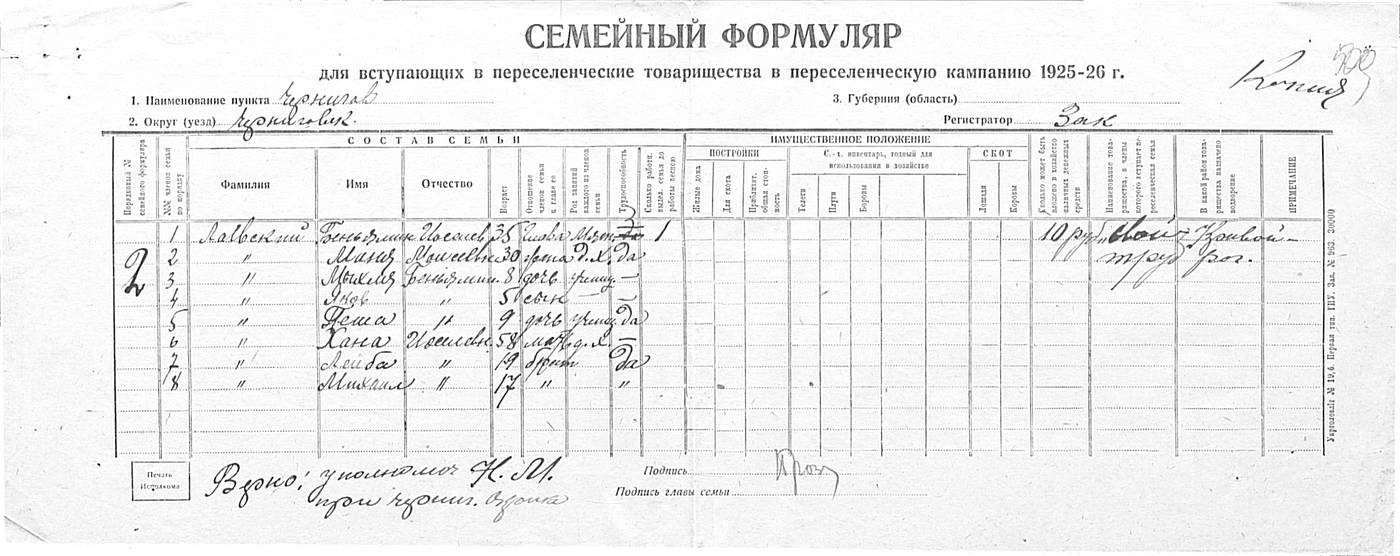 СЕМЕЙНЫЙ ФОРМУЛЯР
для вступающих в переселенческие товарищества в переселенческую кампанию 1925-26 г.
Копия
500
1. Наименование пункта Чернигов
3. Губерния (область)
2. Округ (уезд) Черниговск.
Регистратор Зак
СОСТАВ СЕМЬИ
ИМУЩЕСТВЕННОЕ ПОЛОЖЕНИЕ
Порядковый № семейного формуляра
№№ членов семьи по порядку
Фамилия
Имя
Отчество
Возраст
Отношение членов семьи к главе ее
Род занятий каждого из членов семьи
Трудоспособность
Сколько работн. выдел. семья до работы весною
ПОСТРОЙКИ
Жилые дома
Для скота
Приблизит. общая стоимость
С.-х. инвентарь, годный для использования в хозяйстве
Телеги
Плуги
Бороны
СКОТ
Лошади
Коровы
Сколько может быть вложено в хозяйство наличных денежных средств
Наименование товарищества, в члены которого вступает переселенческая семья
В какой район товарищества назначено водворение
ПРИМЕЧАНИЕ
2
1 Беньямин Иоселев. 35 глава 1 10 руб. „Свой Кривой-
2 " Маня Моисеевн. 30 жена д. х. да труд рог.
3 " Мыхля Беньямин. 8 дочь учениц. —
4 " Яков " 5 сын — —
5 " Песя " 9 дочь учениц. да
6 " Хана Иоселевн. 58 мать д. х. —
7 " Лейба " 19 брат да
8 " Михаил " 17 " "
Печать Исполкома
Верно: уполномоч
при Черниг. Окрика
Подпись
Подпись главы семьи
Укрголовліт № 19,6. Первая тип. ГИУ. Зак. № 963. 20000